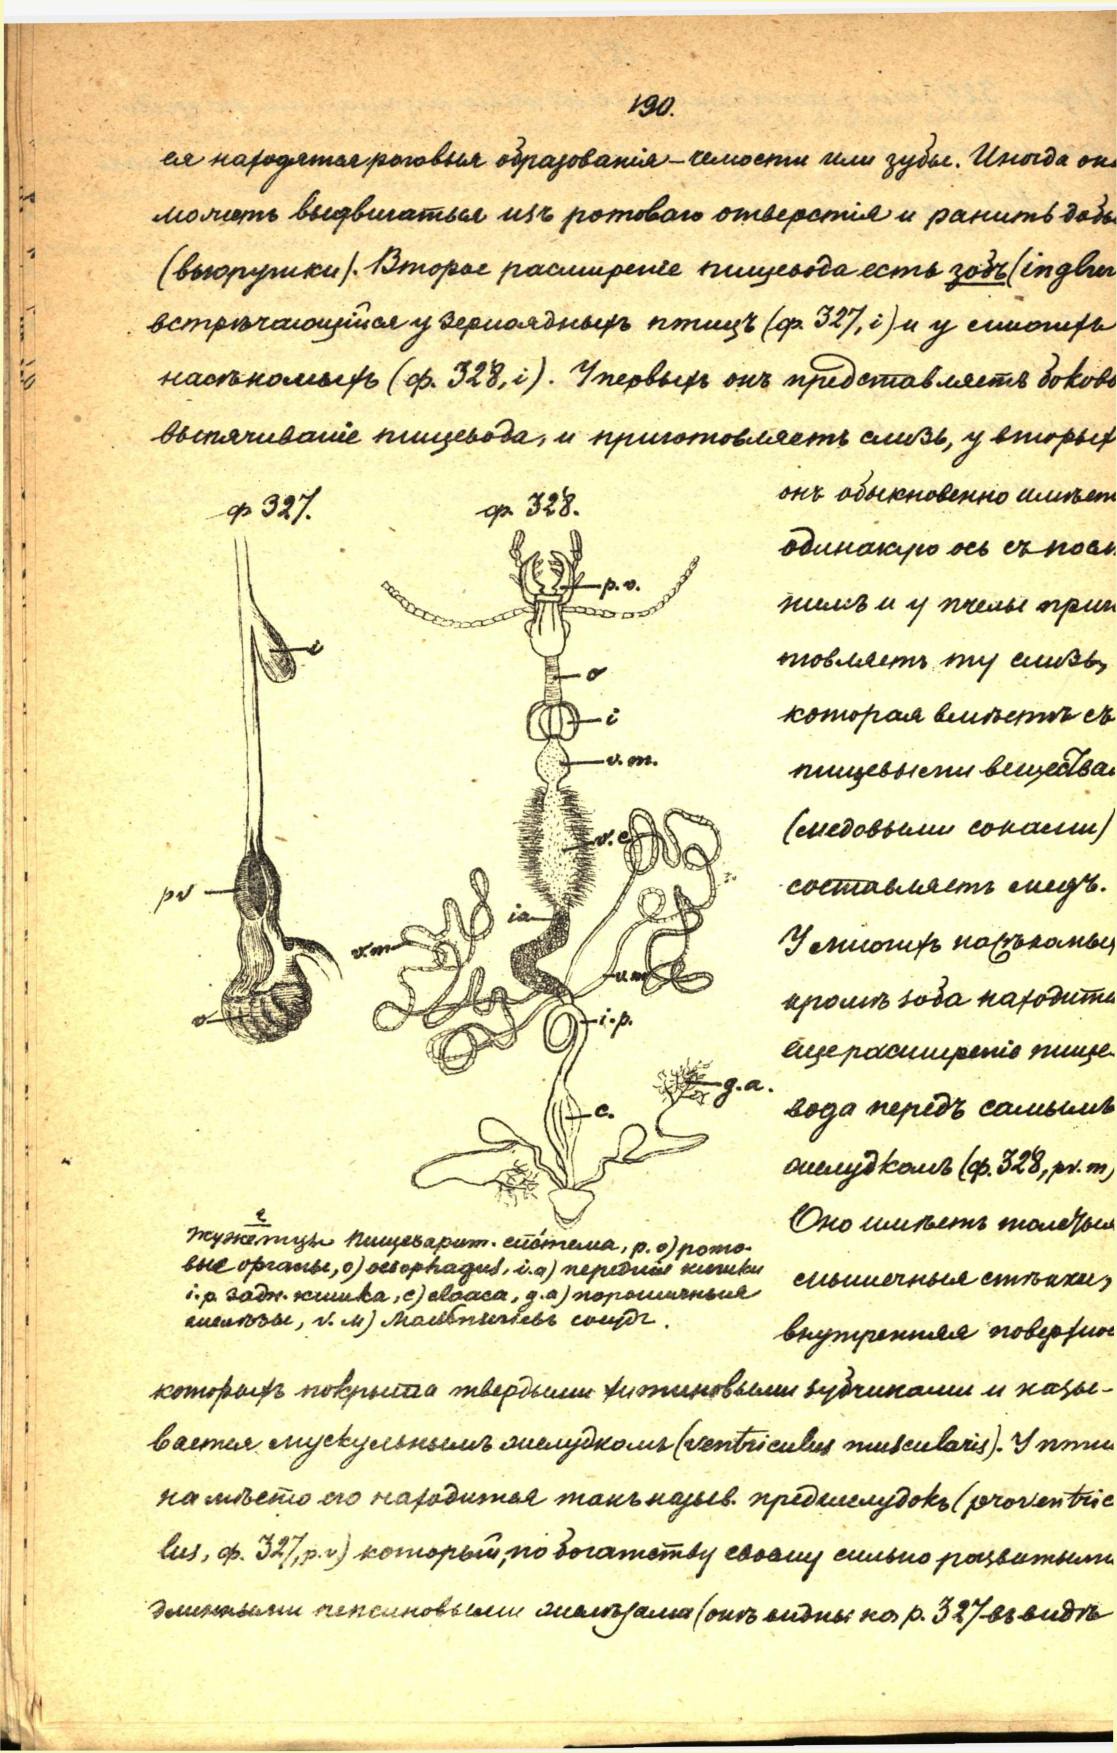 190.
ся находятся роговыя образованія – челюсти или зубы. Иногда он
можетъ выдвигаться изъ ротоваго отверстія и ранить добы
Второе расширеніе пищевода есть зобъ (inglu
встрѣчающійся у зерноядныхъ птицъ (ф. 327, i) и у многихъ
насѣкомыхъ (ф. 328, i). У первыхъ онъ представляетъ боково
выпячиваніе пищевода, и приготовляетъ слизь, у вторых
онъ обыкновенно имѣет
ф 327.
ф. 328.
одинакую ось съ посл
нимъ и у пчелы приг
товляетъ ту слизь,
которая вмѣстѣ съ
пищевыми вещества
(медовыми соками)
составляетъ медъ.
У многихъ насѣкомых
кромѣ зоба находитс
еще расширеніе пище-
вода передъ самымъ
желудкомъ (ф. 328, pv. m)
Оно имѣетъ толстыя
мышечныя стѣнки,
внутренняя поверхнос
p.o.
i
o
i
v.m.
v.c
pv
v.m
v.m
v
i.p.
g.a.
c.
Пищеварит. система, р. о) рото-
вые органы, o) oesophagus, i.a) передніе кишки
i.p задн. кишка, c) cloaca, g.a) порошичныя
железы, v. м) Мальпигіевъ сосудъ.
которыхъ покрыта твердыми хитиновыми зубчиками и назы-
вается мускульнымъ желудкомъ (ventriculus muscularis). У пти
на мѣсто его находится такъ назыв. преджелудокъ (proventric
lus, ф. 327, p.v) который, по богатству своему сильно развитыми
длинными пепсиновыми железами (онѣ видны на р. 327 въ видѣ